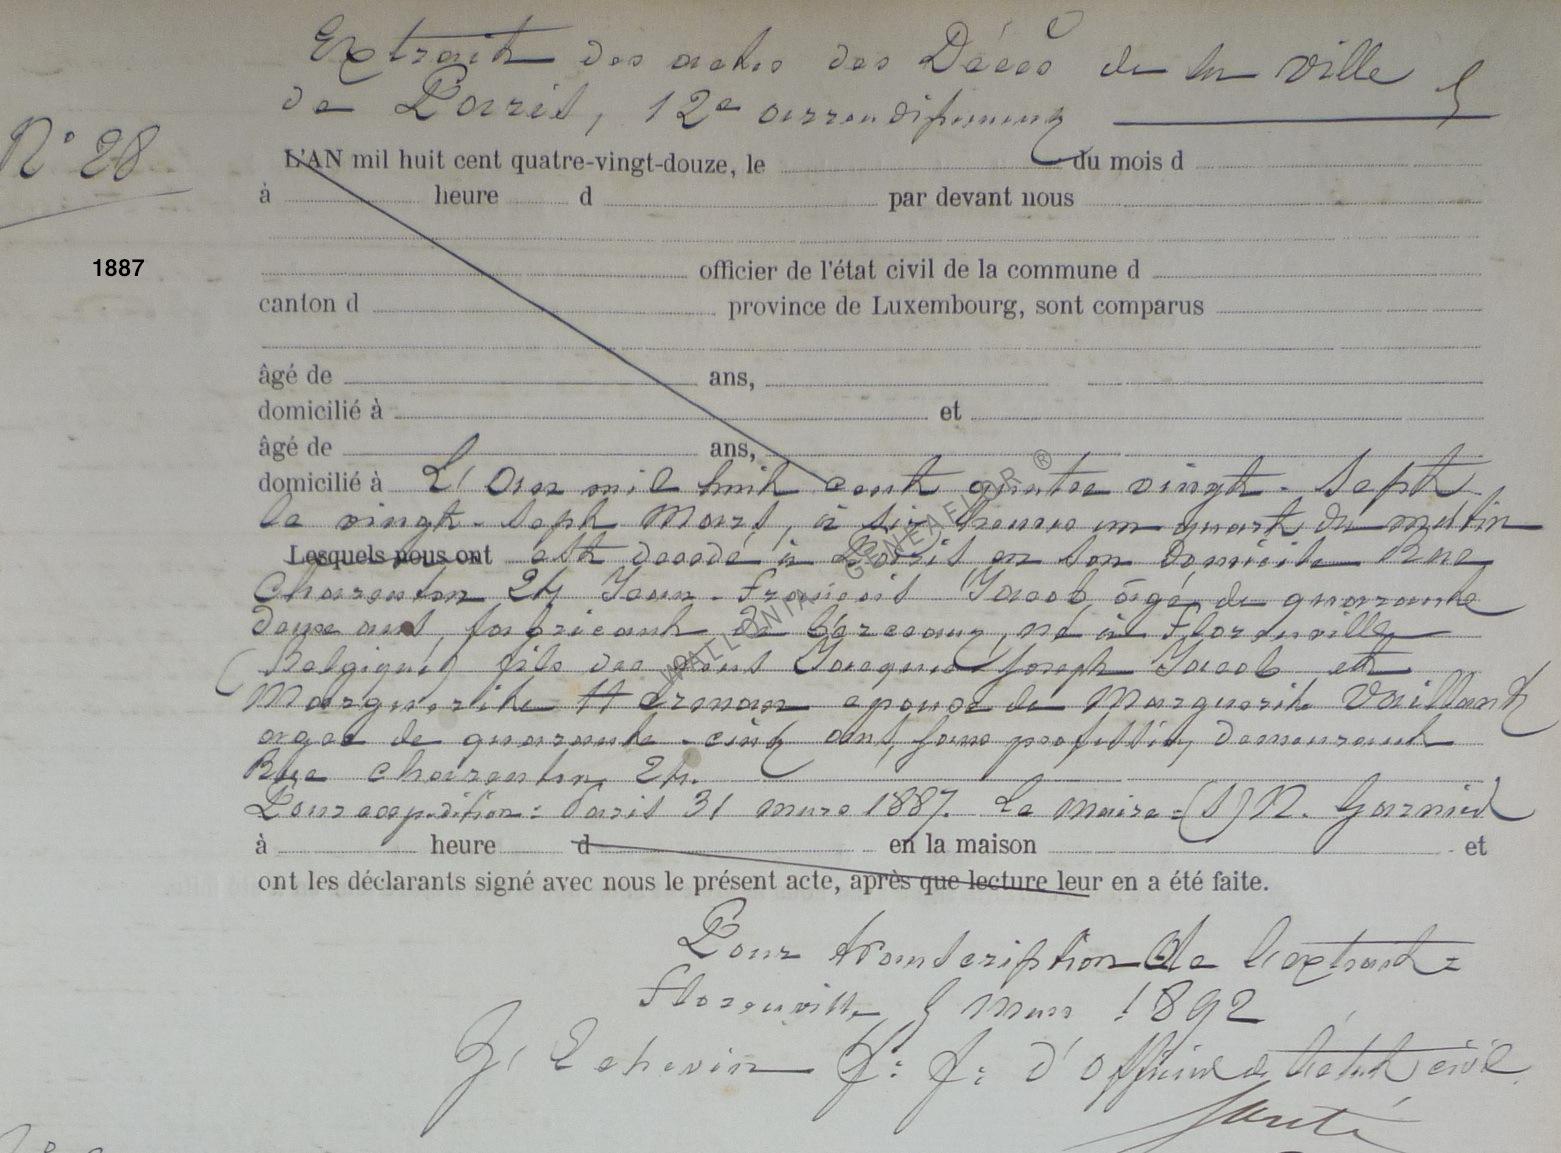 Extrait des actes des Décès de la ville
de Paris, 12e arrondissement
N° 28
L'AN mil huit cent quatre-vingt-douze, le du mois d
à heure d par devant nous
1887
officier de l'état civil de la commune d
canton d province de Luxembourg, sont comparus
âgé de ans,
domicilié à et
âgé de ans,
domicilié à L'an mil huit cent quatre vingt-sept
le vingt-sept Mars, à six heures un quart du matin
Lesquels nous ont est décédé à Paris en son domicile Rue
Charenton 24 Jean-François Jacob âgé de quarante
deux ans, fabricant de berceaux, né à Florenville
(Belgique) fils de Jacques Joseph Jacob et
Marguerite Herman epouse de Marguerite Vaillant
agée de quarante-cinq ans, sans profession, demeurant
Rue Charenton 24.
Pour expedition: Paris 31 mars 1887. Le Maire=(S) N. Garnier
à heure d en la maison et
ont les déclarants signé avec nous le présent acte, après que lecture leur en a été faite.
Pour transcription de l'extrait=
Florenville, 5 mars 1892
L'Echevin f: f: d'officier de l'état civil
WALLONIA GENEAFLOR ®